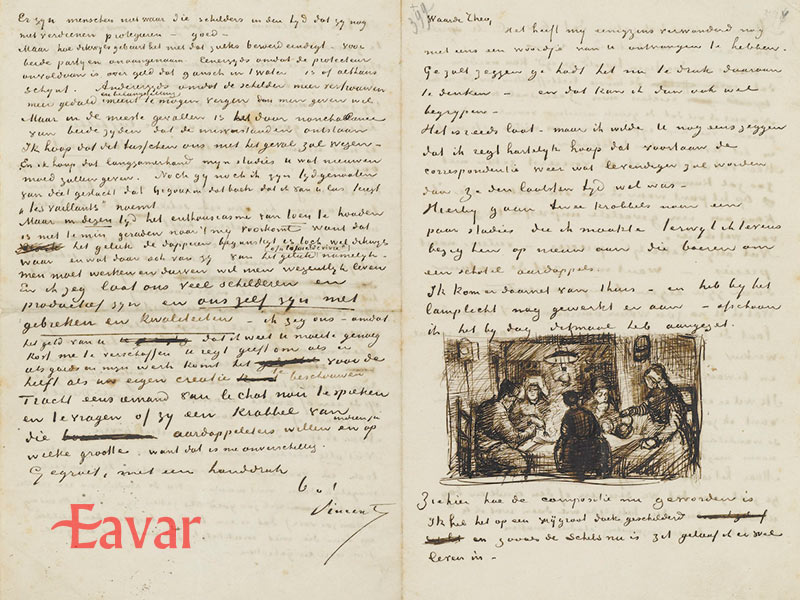 Er zijn menschen net waar die schilders in den tijd dat zij nog
niet verdienen protegeren – goed –
Maar hoe dikwijls gebeurt het niet dat zulks beroerd eindigt – voor
beide partijen onaangenaam. Eenerzijds omdat de protecteur
onvoldaan is over geld dat gansch in 't water is of althans
schijnt. Anderzijds omdat de schilder meer vertrouwen
meer geduld en belangstelling meent te mogen vergen dan men geven wil
Maar in de meeste gevallen is het door nonchalance
van beide zijden dat de misverstanden ontstaan
Ik hoop dat dit tusschen ons niet het geval zal wezen –
En ik hoop dat langzamerhand mijn studies U wat nieuwen
moed zullen geven. Noch gij noch ik zijn tijdgenooten
van dat geslacht dat Gigoux in dat boek dat ik van U las teregt
"les Vaillants" noemt
Maar in dezen tijd het enthousiasme van toen te houden
is niettemin geraden naar 't mij voorkomt want dat
het geluk de dapperen begunstigt is toch wel dikwijls
waar en wat daar ook van zij van het geluk namelijk –
men moet werken en durven wil men wezentlijk leven
En ik zeg laat ons veel schilderen en
productief zijn en ons zelf zijn met
gebreken en kwaliteiten – ik zeg ons – omdat
het geld van U dat ik weet U moeite genoeg
kost me te verschaffen U regt geeft om als er
iets goeds in mijn werk komt het voor de
helft als uw eigen creatie te beschouwen
Tracht eens iemand van le chat noir te spreken
en te vragen of zij een krabbel van
die aardappeleters willen en zoo ja op
welke grootte. want dat is me onverschillig
Gegroet, met een handdruk
b à t
Vincent
Eavar
Waarde Theo,
dat heeft mij eenigzins verwonderd nog
niet eens een woordje van U ontvangen te hebben.
Ge zult zeggen ge hadt het nu te druk daaraan
te denken – en dat kan ik dan ook wel
begrijpen –
Het is reeds laat – maar ik wilde U nog eens zeggen
dat ik regt hartelijk hoop dat voortaan de
correspondentie weer wat levendiger zal worden
dan ze den laatsten tijd wel was –
Hierbij gaan twee krabbels naar een
paar studies die ik maakte terwijl ik tevens
bezig ben op nieuw aan die boeren om
een schotel aardappels.
Ik kom er daarnet van thuis – en heb bij het
lamplicht nog gewerkt er aan – ofschoon
ik het bij dag ditmaal heb aangezet.
Ziehier hoe de compositie nu geworden is
Ik heb het op een vrij groot doek geschilderd
en zooals de schets nu is zit geloof ik er wel
leven in –